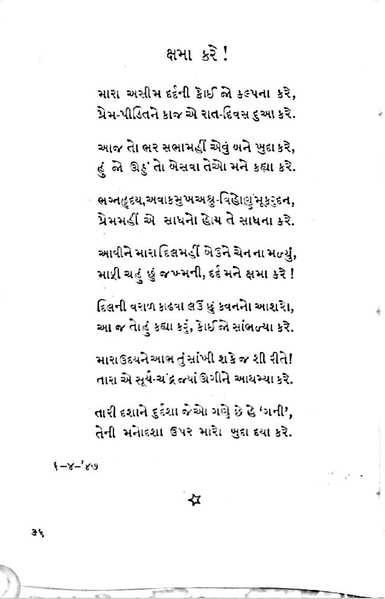 ક્ષમા કરે !
મારા અસીમ દર્દની કોઈ જો કલ્પના કરે,
પ્રેમ-પીડિતને કાજ એ રાત-દિવસ દુઆ કરે.
આજ તો ભર સભામહીં એવું બને ખુદા કરે,
હું જો ઊઠું તો બેસવા તેઓ મને કહ્યા કરે.
ભગ્નહૃદય, અવાકમુખ અશ્રુ-વિહોણું મૂકરુદન,
પ્રેમમહીં એ સાધનો હોય તે સાધના કરે.
આવીને મારા દિલમહીં બેઉને ચેન ના મળ્યું,
માફી ચહું છું જખ્મની, દર્દ મને ક્ષમા કરે !
દિલની વરાળ કાઢવા લઉં છું કવનનો આશરો,
આ જ તો હું કહ્યા કરું, કોઈ જો સાંભળ્યા કરે.
મારા ઉદયને આભ તું સાંખી શકે જ શી રીતે !
તારા એ સૂર્ય-ચંદ્ર જ્યાં ઊગીને આથમ્યા કરે.
તારી દશાને દુર્દશા જેઓ ગણે છે હે ‘ગની’,
તેની મનોદશા ઉપર મારો ખુદા દયા કરે.
૬-૪-'૪૭
૩૬